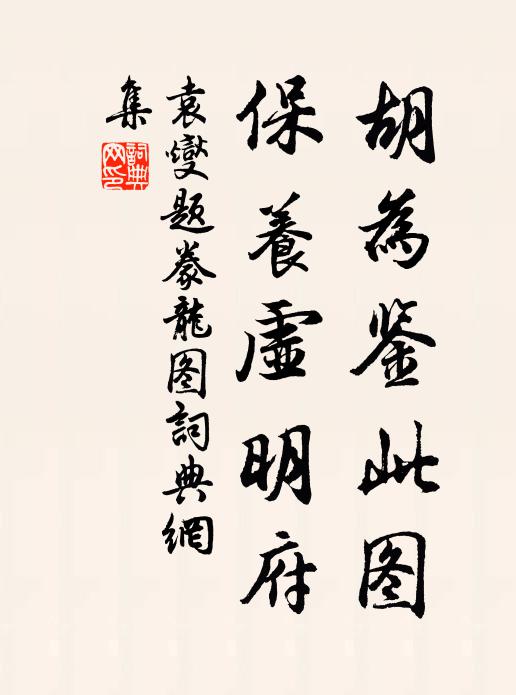 胡為鉴此图
保養虛明府
袁燮题豢龍图詞典網
集
詞典網印